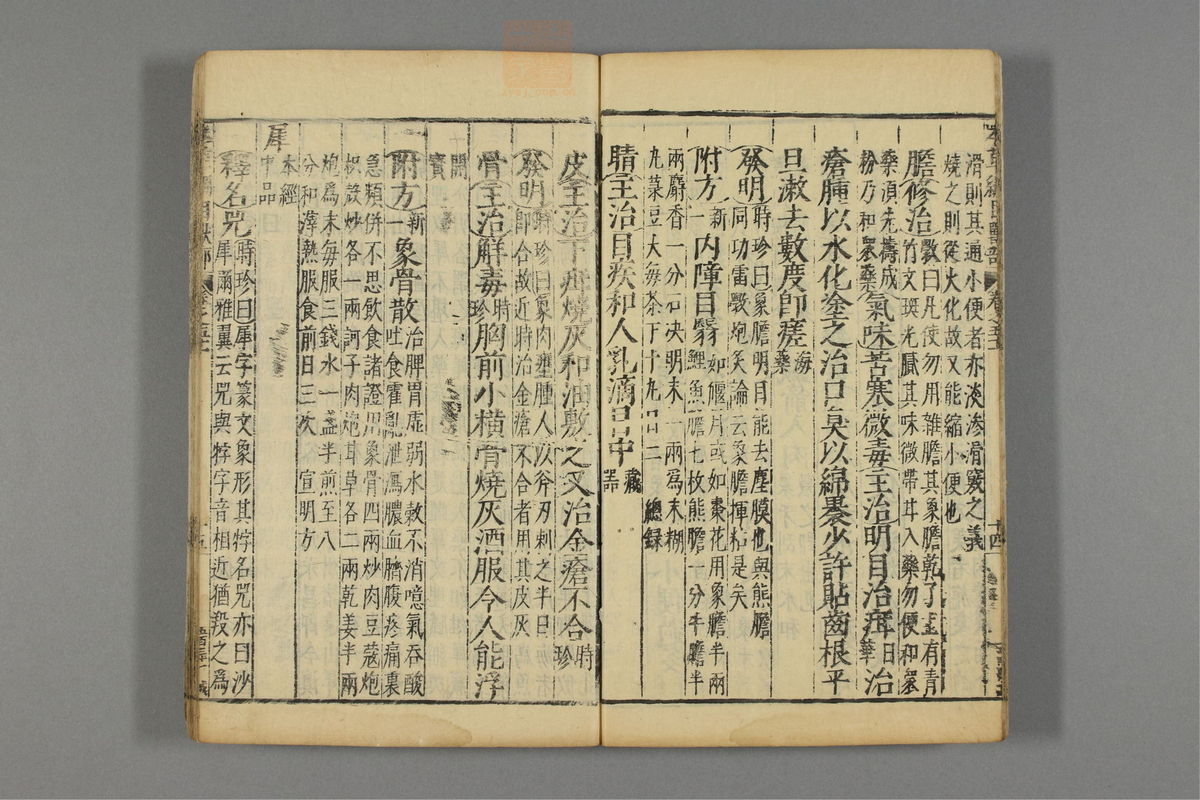 滑則其通小便者亦淡滲滑竅之義
燒之則從火化故又能縮小便也
膽修治斆曰凡使勿用雜膽其象膽乾了上有青
竹文斑光膩其味微帶甘入藥勿便和衆
藥須先擣成
粉乃和衆藥氣味苦寒微毒主治明目治疳日華治
瘡腫以水化塗之治口臭以綿裹少許貼齒根平
旦漱去數度即瘥海藥
發明時珍曰象膽明目能去塵膜也與熊膽
同功雷斆炮炙論云象膽揮粘是矣
附方新一內障目翳如偃月或如棗花用象膽半兩
鯉魚膽七枚熊膽一分牛膽半
兩麝香一分石決明末一兩爲末糊
丸菉豆大每茶下十丸日二 總録
睛主治目疾和人乳滴目中藏器
皮主治下疳燒灰和油敷之又治金瘡不合時珍
發明時珍曰象肉壅腫人以斧刃刺之半日
即合故近時治金瘡不合者用其皮灰
骨主治解毒時珍胸前小橫骨燒灰酒服令人能浮
開寶
附方新一象骨散治脾胃虛弱水穀不消噫氣吞酸
吐食霍亂泄瀉膿血臍腹疼痛裏
急頻併不思飲食諸證用象骨四兩炒肉豆蔻炮
枳殼炒各一兩訶子肉炮甘草各二兩乾姜半兩
炮爲末每服三錢水一盞半煎至八
分和滓熱服食前日三次 宣明方
犀本經中品
釋名兕時珍曰犀字篆文象形其牸名兕亦曰沙
犀爾雅翼云兕與牸字音相近猶羖之爲